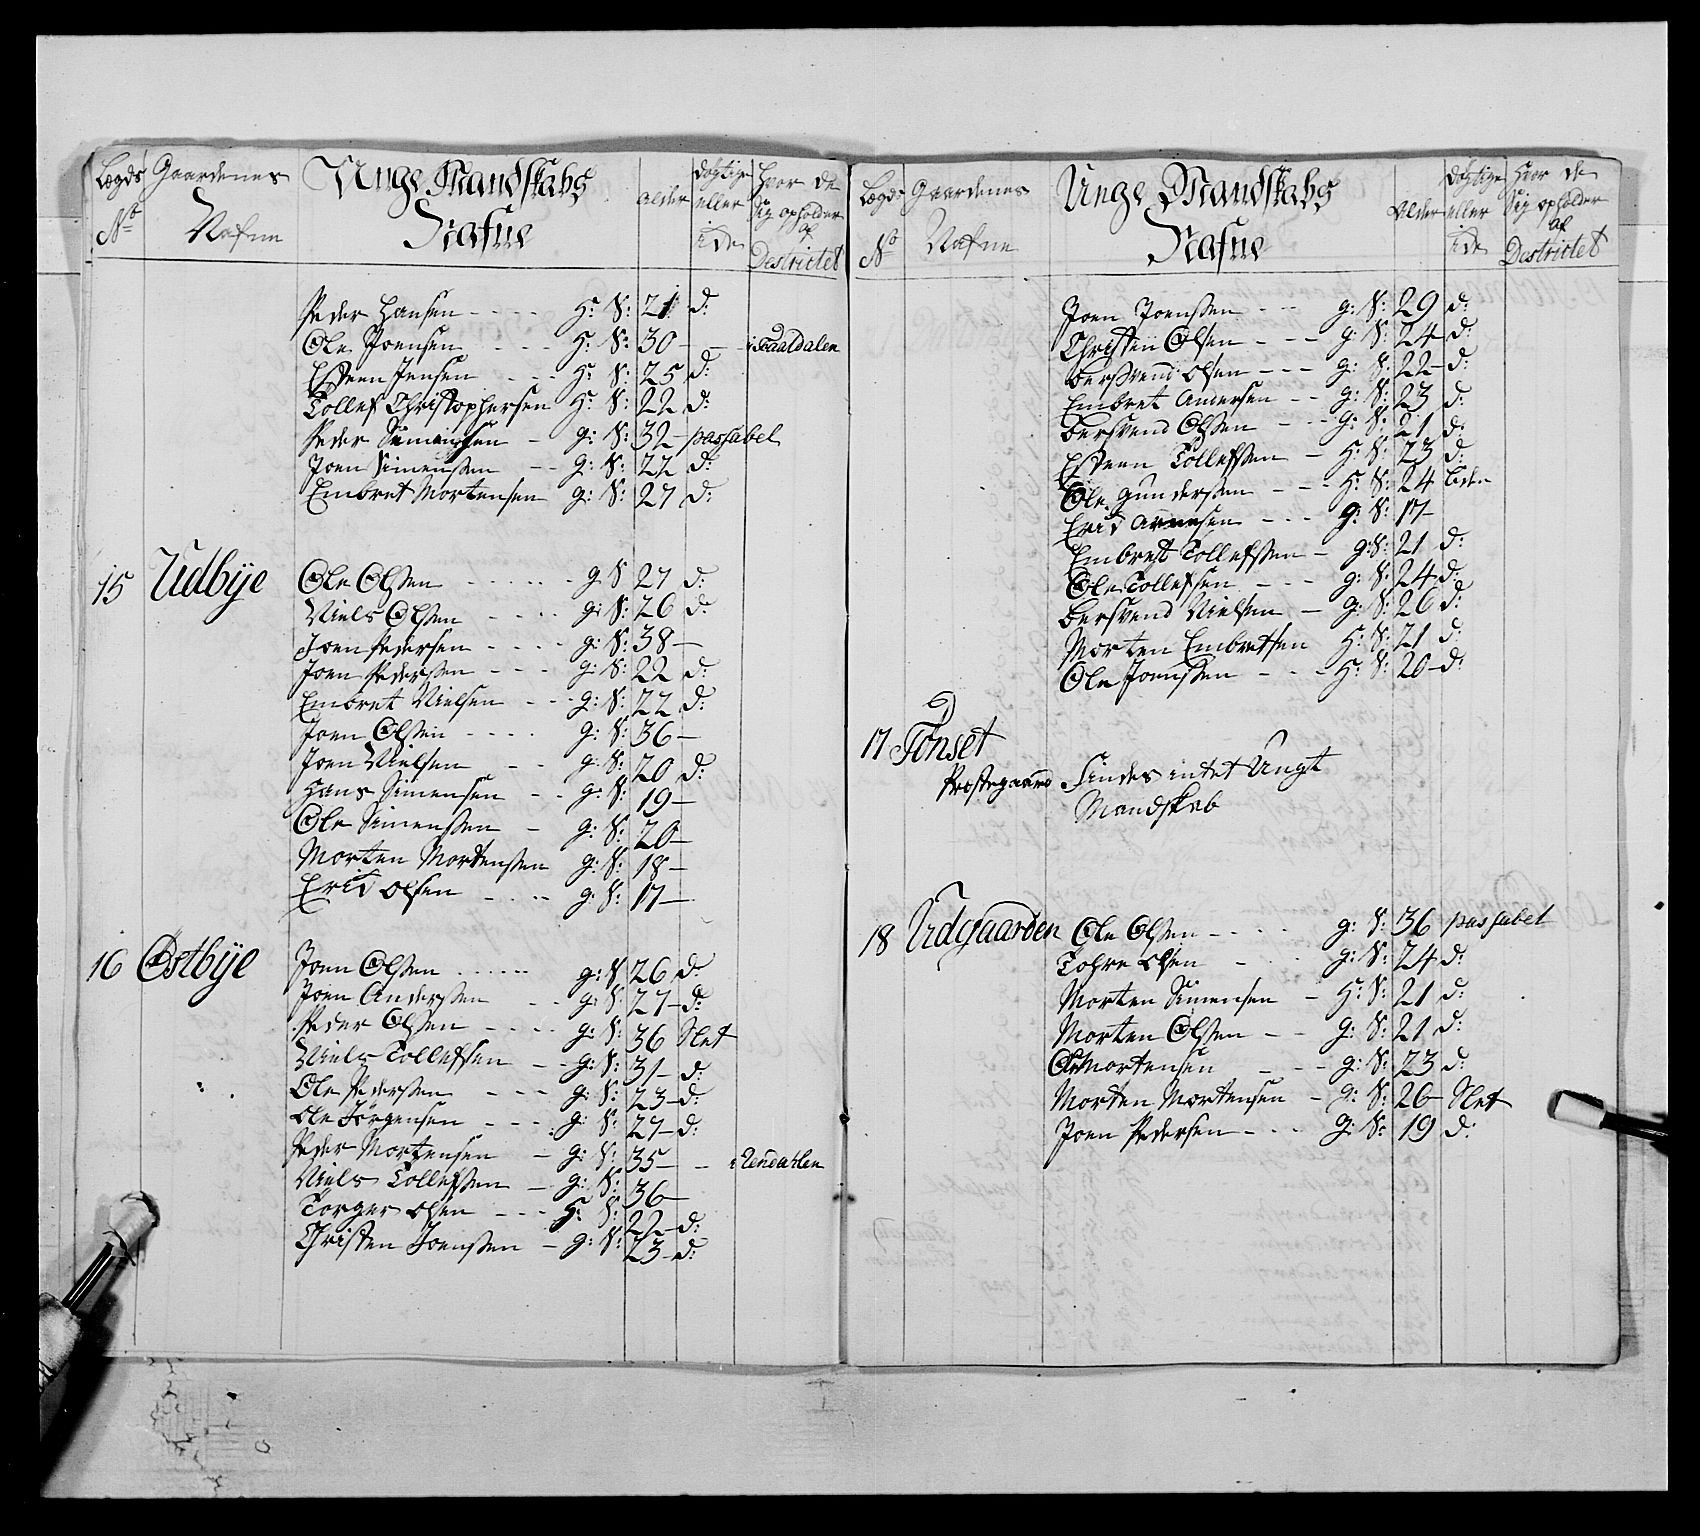 Lægds No Gaardenes Nafne Unge Mandskabs Nafne alder dygtige eller i de Hvor de Sig opholder af Destrictet
Peder Hansen - - - - H: S: 21 d:
Ole Joensen - - - H: S: 30 - - i Faaldalen
Esten Jensen - - - H: S: 25 d:
Tollef Christophersen H: S: 22 d:
Peder Simensen - g: S: 32 - passabel
Joen Simenssen - - g: S: 22 d:
Embret Mortensen g: S: 27 d:
15 Udbÿe Ole Olssen - - - - - - g S 27 d:
Niels Olssen - - - - g: S: 26 d:
Joen Pedersen - - - - g: S: 38 -
Joen Pederssen - - - - g: S: 22 d:
Embret Nielsen - - - g: S: 22 d:
Joen Olssen - - - - g: S: 36 -
Joen Nielsen - - g: S: 20 d:
Hans Simensen - - g: S: 19 -
Ole Simenssen - g: S: 20 -
Morten Mortenssen g: S: 18 -
Erich Olsen - - - - g: S: 17 -
16 Østbÿe Joen Olssen - - - - - - g: S 26 d:
Joen Anderssen - - - g: S: 27 - d:
Peder Olssen - - - - g: S: 36 Slet
Niels Tollefsen - - g: S: 31 - d:
Ole Pederssen - - - g: S: 23 - d:
Ole Jörgensen - - - g: S: 27 - d:
Peder Mortensen - g: S: 35 - - i Rendahlen
Niels Tollefssen - g: S: 36 -
Törger Olsen - - - H: S: 22 - d:
Christen Joenssen - g: S: 23 - d:
Lægds No Gaardenes Nafne Unge Mandskabs Nafne Alder dygtige eller i de Hvor de Sig opholder af Destrictet
Joen Joenssen - - - g: S: 29 d:
Christen Olsen - - - g: S: 24 d:
Bersvend Olsen - - - g: S: 22 - d:
Embret Andersen - - g: S: 23 d:
Bersvend Olssen - - - g: S: 21 d:
Esten Tollefssen - H: S: 23 d:
Ole Gunderssen - - - H: S: 24 liden
Erich Arnesen - - - g: S: 17 -
Embret Tollefssen - g: S: 21 d:
Ole Tollefsen - - - g: S: 24 d:
Bersvend Nielsen - g: S: 26 d:
Morten Embretsen H: S: 21 d:
Ole Joenssen - - - H: S: 20 - d:
17 Tönset
Prestegaard Findes intet Ungt
Mandskab
18 Udgaarden Ole Olssen - - - - g: S: 36 passabel
Tohre Olsen - - - g: S: 24 d:
Morten Simensen - H: S: 21 d:
Morten Olssen - - g: S: 21 d:
Ole Mortensen - - - g: S: 23 d:
Morten Mortensen - g: S: 26 - Slet
Joen Pedersen - - - g: S: 19 d: